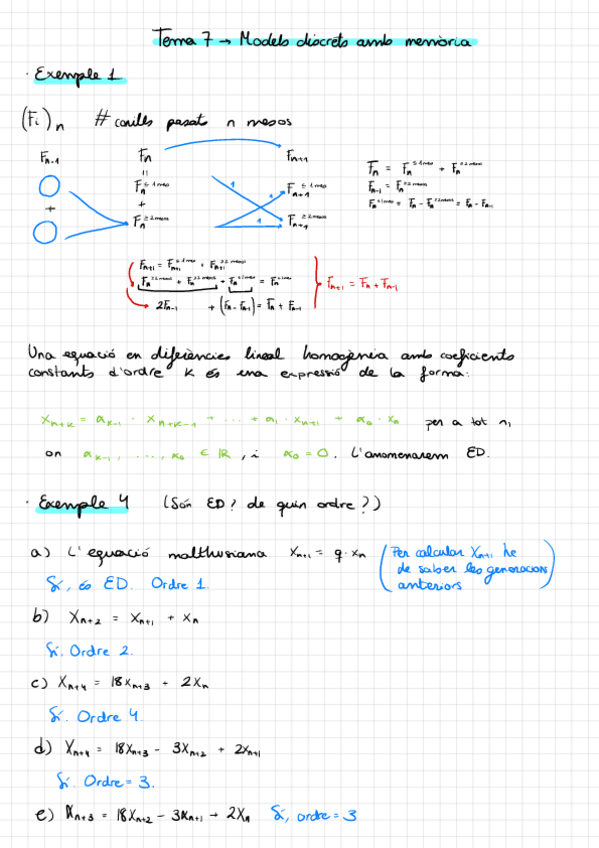 Tema 7 → Models discrets amb memòria
· Exemple 1
(Fi)n # conills passat n mesos
Fn-1 Fn Fn+1
+
Fn ≤1 mes
+
Fn ≥2 mesos
Fn+1 ≤1 mes
Fn+1 ≥2 mesos
1 1 1
Fn = Fn ≤1 mes + Fn ≥2 mesos
Fn-1 = Fn ≥2 mesos
Fn ≤1 mes = Fn - Fn ≥2 mesos = Fn - Fn-1
Fn+1 = Fn+1 ≤1 mes + Fn+1 ≥2 mesos
Fn ≥2 mesos + Fn ≥2 mesos + Fn ≤1 mes
2Fn-1 + (Fn - Fn-1) = Fn + Fn-1
Fn+1 = Fn + Fn-1
Una equació en diferències lineal homogènia amb coeficients
constants d'ordre K és una expressió de la forma:
xn+k = ak-1 · xn+k-1 + ... + a1 · xn+1 + a0 · xn per a tot n,
on ak-1, ..., a0 ∈ IR, i a0 = 0. L'anomenarem ED.
· Exemple 4 (Són ED? de quin ordre?)
a) L'equació malthusiana xn+1 = q · xn
(Per calcular xn+1 he
de saber les generacions
anteriors)
Sí, és ED. Ordre 1.
b) xn+2 = xn+1 + xn
Sí. Ordre 2.
c) xn+4 = 18xn+3 + 2xn
Sí. Ordre 4.
d) xn+4 = 18xn+3 - 3xn+2 + 2xn+1
Sí. Ordre = 3.
e) xn+3 = 18xn+2 - 3xn+1 + 2xn Sí, ordre = 3